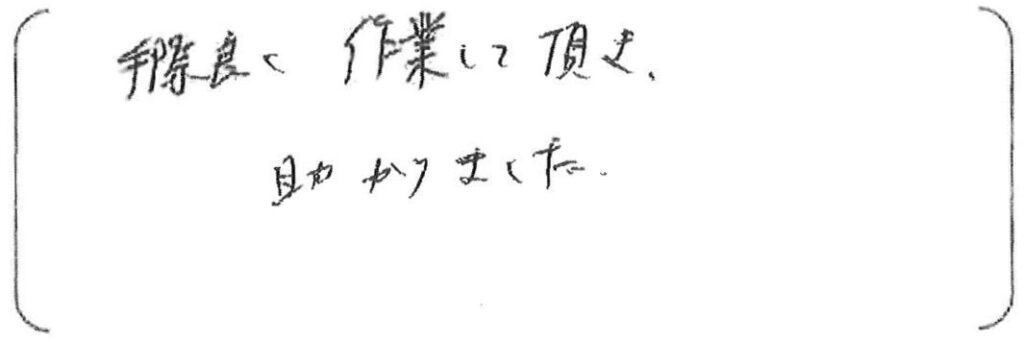 手際良く作業して頂き、
助かりました。